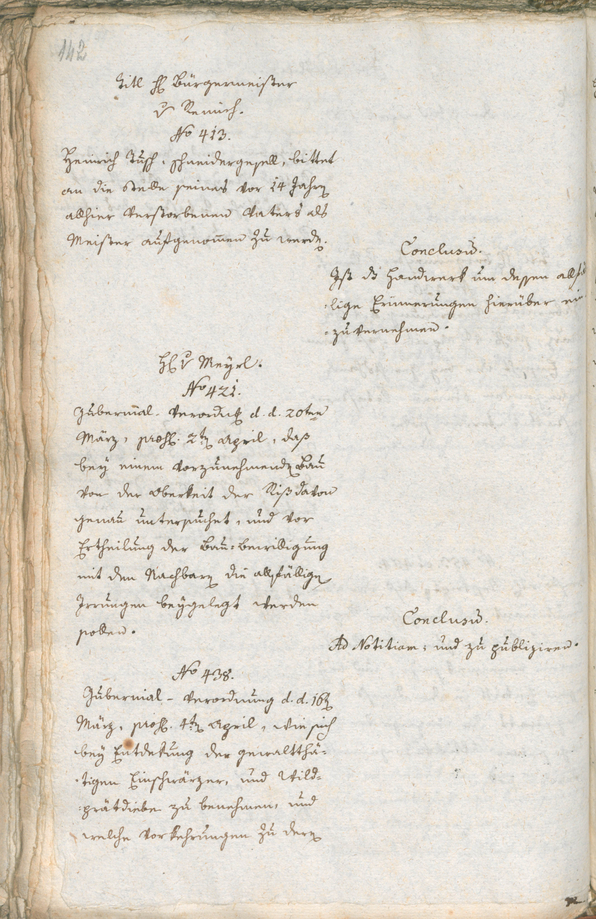 142
Titl H Bürgermeister
v Remich.
No 413.
Heinrich Tusch, schneidergesell, bittet
an die Stelle seines vor 14 Jahrn
allhier verstorbenen Vaters als
Meister aufgenomen zu werdn.
Conclusū.
Ist ds Handwerk um dessen allfäl
lige Erinnerungen hierüber ein
zuvernehmen.
H v Meyrl.
No 421.
Gubernial-Verordng d. d. 20ten
März, præs. 2tn April, daß
bey einem vorzunehmendn Bau
von der Oberkeit der Riß davon
genau untersuchet, und vor
Ertheilung der Bau-bewilligung
mit den Nachbarn die allfällign
Irrungen beygelegt werden
sollen.
Conclusū.
Ad Notitiam, und zu publiziren.
No 438.
Gubernial-Verordnung d. d. 16tn
März, præs. 4tn April, wie sich
bey Entdekung der gewaltthä-
tigen Einschwärzer, und Wild-
prätdiebe zu benehmen, und
welche Vorkehrungen zu dern